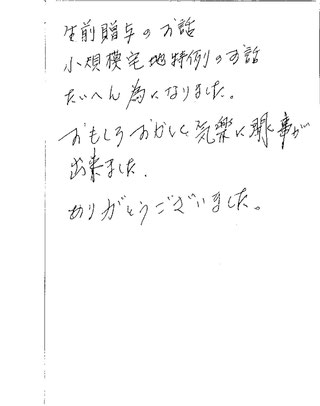 生前贈与のお話
小規模宅地特例のお話
たいへん為になりました。
おもしろおかしく気楽に聞く事が
出来ました.
ありがとうございました。